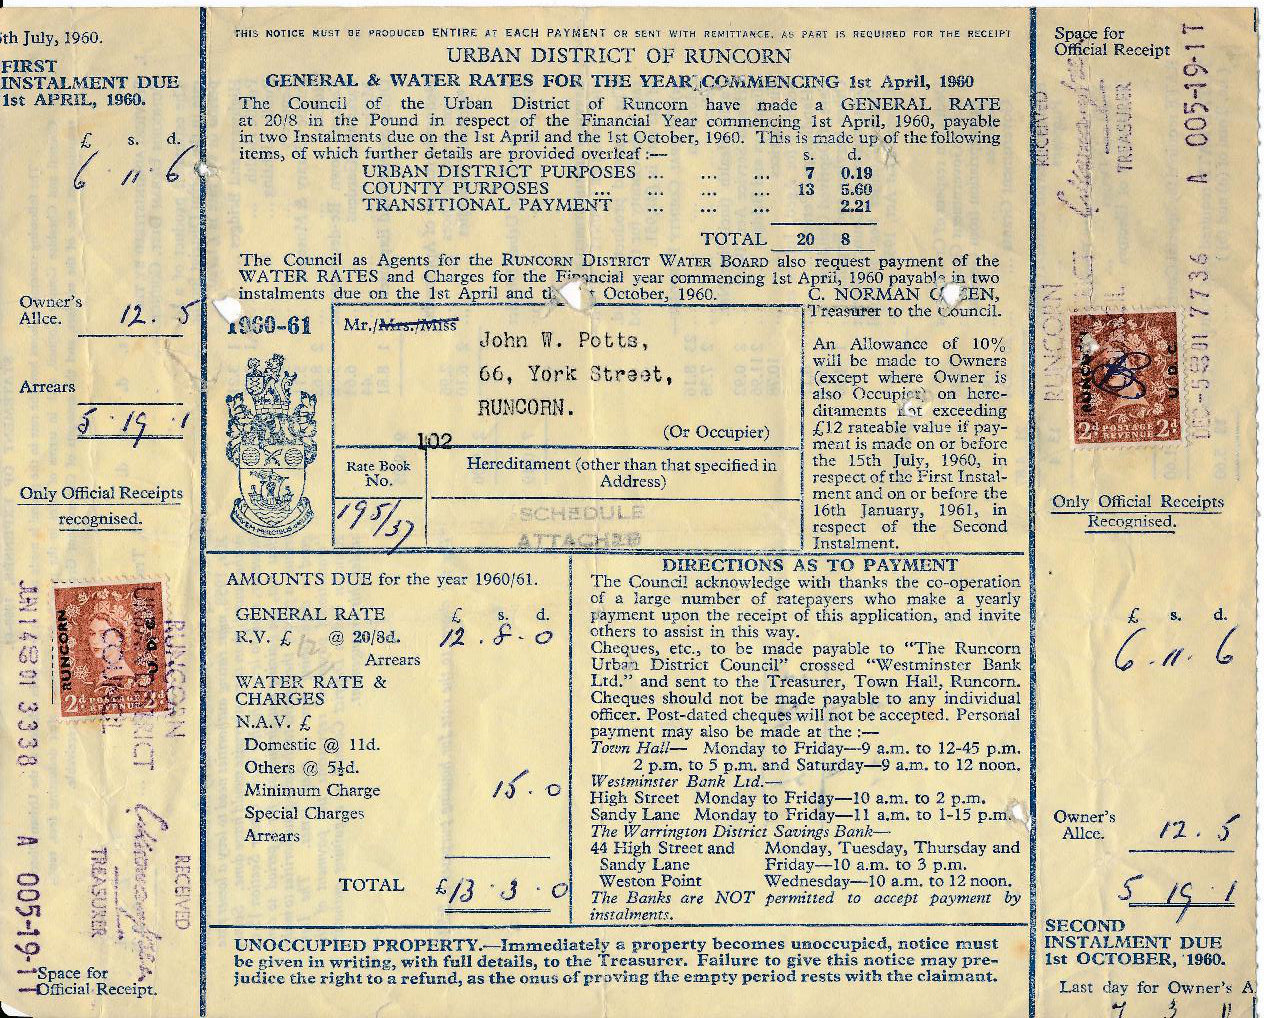 5th July, 1960.
FIRST
INSTALMENT DUE
1st APRIL, 1960.
£ s. d.
6 . 11 . 6
Owner's
Allce. 12 . 5
Arrears
5 . 19 . 1
Only Official Receipts
recognised.
RUNCORN
U. D. C.
2d POSTAGE REVENUE 2d
JUN 14 60 01 3338
A 005-19-1T
RUNCORN
RECEIVED
TREASURER
Space for
Official Receipt.
THIS NOTICE MUST BE PRODUCED ENTIRE AT EACH PAYMENT OR SENT WITH REMITTANCE, AS PART IS REQUIRED FOR THE RECEIPT
URBAN DISTRICT OF RUNCORN
GENERAL & WATER RATES FOR THE YEAR COMMENCING 1st April, 1960
The Council of the Urban District of Runcorn have made a GENERAL RATE
at 20/8 in the Pound in respect of the Financial Year commencing 1st April, 1960, payable
in two Instalments due on the 1st April and the 1st October, 1960. This is made up of the following
items, of which further details are provided overleaf :—
s. d.
URBAN DISTRICT PURPOSES ... ... ... 7 0.19
COUNTY PURPOSES ... ... ... 13 5.60
TRANSITIONAL PAYMENT ... ... ... 2.21
TOTAL 20 8
The Council as Agents for the RUNCORN DISTRICT WATER BOARD also request payment of the
WATER RATES and Charges for the Financial year commencing 1st April, 1960 payable in two
instalments due on the 1st April and October, 1960.
C. NORMAN
Treasurer to the Council.
1960-61
Mr./Mrs./Miss
John W. Potts,
66, York Street,
RUNCORN.
(Or Occupier)
102
Rate Book
No.
195/37
Hereditament (other than that specified in
Address)
SCHEDULE
ATTACHED
An Allowance of 10%
will be made to Owners
(except where Owner is
also Occupier) on here-
ditaments not exceeding
£12 rateable value if pay-
ment is made on or before
the 15th July, 1960, in
respect of the First Instal-
ment and on or before the
16th January, 1961, in
respect of the Second
Instalment.
AMOUNTS DUE for the year 1960/61.
GENERAL RATE £ s. d.
R.V. £ 12 @ 20/8d. 12 . 8 . 0
Arrears
WATER RATE &
CHARGES
N.A.V. £
Domestic @ 11d.
Others @ 5½d.
Minimum Charge 15 . 0
Special Charges
Arrears
TOTAL £13 . 3 . 0
DIRECTIONS AS TO PAYMENT
The Council acknowledge with thanks the co-operation
of a large number of ratepayers who make a yearly
payment upon the receipt of this application, and invite
others to assist in this way.
Cheques, etc., to be made payable to "The Runcorn
Urban District Council" crossed "Westminster Bank
Ltd." and sent to the Treasurer, Town Hall, Runcorn.
Cheques should not be made payable to any individual
officer. Post-dated cheques will not be accepted. Personal
payment may also be made at the :—
Town Hall— Monday to Friday—9 a.m. to 12-45 p.m.
2 p.m. to 5 p.m. and Saturday—9 a.m. to 12 noon.
Westminster Bank Ltd.—
High Street Monday to Friday—10 a.m. to 2 p.m.
Sandy Lane Monday to Friday—11 a.m. to 1-15 p.m.
The Warrington District Savings Bank—
44 High Street and Monday, Tuesday, Thursday and
Sandy Lane Friday—10 a.m. to 3 p.m.
Weston Point Wednesday—10 a.m. to 12 noon.
The Banks are NOT permitted to accept payment by
instalments.
UNOCCUPIED PROPERTY.—Immediately a property becomes unoccupied, notice must
be given in writing, with full details, to the Treasurer. Failure to give this notice may pre-
judice the right to a refund, as the onus of proving the empty period rests with the claimant.
Space for
Official Receipt
RECEIVED
TREASURER
A 005-19-1T
RUNCORN
RUNCORN
U. D. C.
2d POSTAGE REVENUE 2d
DEC-5 60 01 7736
Only Official Receipts
Recognised.
£ s. d.
6 . 11 . 6
Owner's
Allce. 12 . 5
5 . 19 . 1
SECOND
INSTALMENT DUE
1st OCTOBER, 1960.
Last day for Owner's A